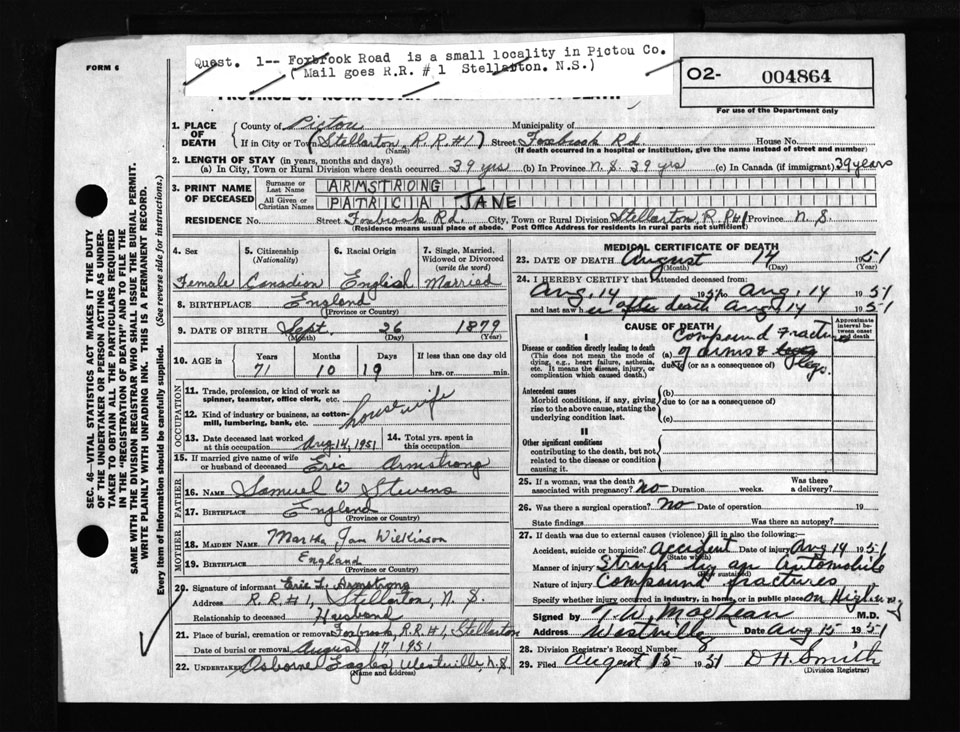 FORM 6
Quest. 1-- Foxbrook Road is a small locality in Pictou Co.
( Mail goes R.R. # 1 Stellarton. N.S.)
O2- 004864
For use of the Department only
SEC. 46—VITAL STATISTICS ACT MAKES IT THE DUTY
OF THE UNDERTAKER OR PERSON ACTING AS UNDER-
TAKER TO OBTAIN ALL THE PARTICULARS REQUIRED
IN THE "REGISTRATION OF DEATH" AND TO FILE THE
SAME WITH THE DIVISION REGISTRAR WHO SHALL ISSUE THE BURIAL PERMIT.
WRITE PLAINLY WITH UNFADING INK. THIS IS A PERMANENT RECORD.
Every item of Information should be carefully supplied. (See reverse side for instructions.)
1. PLACE OF DEATH County of Pictou Municipality of
If in City or Town (Stellarton, R.R.#1) Street Foxbrook Rd. House No.
(Name) (If death occurred in a hospital or institution, give the name instead of street and number)
2. LENGTH OF STAY (in years, months and days)
(a) In City, Town or Rural Division where death occurred 39 yrs (b) In Province N.S. 39 yrs (c) In Canada (if immigrant) 39 years
3. PRINT NAME OF DECEASED Surname or Last Name ARMSTRONG
All Given or Christian Names PATRICIA JANE
RESIDENCE No. Street Foxbrook Rd. City, Town or Rural Division Stellarton, R.R#1 Province N.S.
(Residence means usual place of abode. Post Office Address for residents in rural parts not sufficient)
4. Sex 5. Citizenship (Nationality) 6. Racial Origin 7. Single, Married, Widowed or Divorced (write the word)
Female Canadian English Married
8. BIRTHPLACE England
(Province or Country)
9. DATE OF BIRTH Sept. 26 1879
(Month) (Day) (Year)
10. AGE in Years Months Days If less than one day old
71 10 19 hrs. or min.
OCCUPATION
11. Trade, profession, or kind of work as
spinner, teamster, office clerk, etc.
12. Kind of industry or business, as cotton-
mill, lumbering, bank, etc. housewife
13. Date deceased last worked at this occupation Aug 14, 1951 14. Total yrs. spent in this occupation
15. If married give name of wife
or husband of deceased Eric Armstrong
FATHER
16. NAME Samuel W Stevens
17. BIRTHPLACE England
(Province or Country)
MOTHER
18. MAIDEN NAME Martha Jane Wilkinson
19. BIRTHPLACE England
(Province or Country)
20. Signature of informant Eric L. Armstrong
Address R.R.#1, Stellarton, N.S.
Relationship to deceased Husband
21. Place of burial, cremation or removal Foxbrook, R.R.#1, Stellarton
Date of burial or removal August 17, 1951
22. Undertaker Osborne Eagles, Westville, N.S.
(Name and address)
MEDICAL CERTIFICATE OF DEATH
23. DATE OF DEATH August 14 1951
(Month) (Day) (Year)
24. I HEREBY CERTIFY that I attended deceased from
Aug. 14 1951 to Aug. 14 1951
and last saw her after death Aug 14 1951
CAUSE OF DEATH Approximate interval between onset and death
I
Disease or condition directly leading to death
(This does not mean the mode of
dying, e.g., heart failure, asthenia,
etc. It means the disease, injury, or
complication which caused death.)
(a) Compound Fractures
of arms & legs.
due to (or as a consequence of)
Antecedent causes
Morbid conditions, if any, giving
rise to the above cause, stating the
underlying condition last.
(b)
due to (or as a consequence of)
(c)
II
Other significant conditions
contributing to the death, but not
related to the disease or condition
causing it.
25. If a woman, was the death Was there
associated with pregnancy? no Duration weeks. a delivery?
26. Was there a surgical operation? no Date of operation 19
State findings Was there an autopsy?
27. If death was due to external causes (violence) fill in also the following:
Accident, suicide or homicide? accident Date of injury Aug 14 1951
(State which)
Manner of injury Struck by an Automobile
(How sustained)
Nature of injury Compound fractures
Specify whether injury occurred in industry, in home, or in public place on Highway
Signed by T. W. MacLean M.D.
Address Westville Date Aug 15 1951
28. Division Registrar's Record Number
29. Filed August 15 1951 D H. Smith
(Division Registrar)